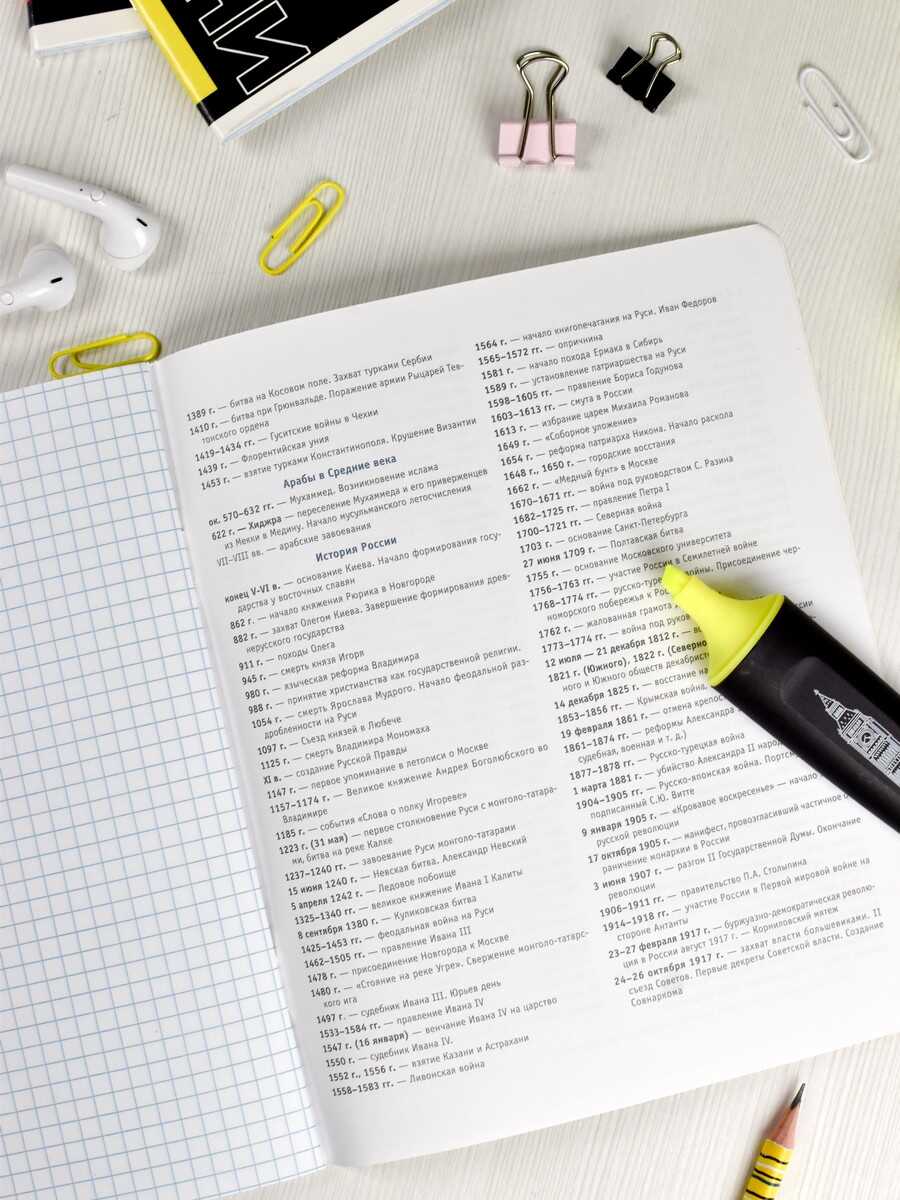 НИ
1389 г. — битва на Косовом поле. Захват турками Сербии
1410 г. — битва при Грюнвальде. Поражение армии Рыцарей Тев-
тонского ордена
1419–1434 гг. — Гуситские войны в Чехии
1439 г. — Флорентийская уния
1453 г. — взятие турками Константинополя. Крушение Византии
Арабы в Средние века
ок. 570–632 гг. — Мухаммед. Возникновение ислама
622 г. — Хиджра — переселение Мухаммеда и его приверженцев
из Мекки в Медину. Начало мусульманского летосчисления
VII–VIII вв. — арабские завоевания
История России
конец V–VI в. — основание Киева. Начало формирования госу-
дарства у восточных славян
862 г. — начало княжения Рюрика в Новгороде
882 г. — захват Олегом Киева. Завершение формирования древ-
нерусского государства
911 г. — походы Олега
945 г. — смерть князя Игоря
980 г. — языческая реформа Владимира
988 г. — принятие христианства как государственной религии.
1054 г. — смерть Ярослава Мудрого. Начало феодальной раз-
дробленности на Руси
1097 г. — Съезд князей в Любече
1125 г. — смерть Владимира Мономаха
XI в. — создание Русской Правды
1147 г. — первое упоминание в летописи о Москве
1157–1174 г. — Великое княжение Андрея Боголюбского во
Владимире
1185 г. — события «Слова о полку Игореве»
1223 г. (31 мая) — первое столкновение Руси с монголо-татара-
ми, битва на реке Калке
1237–1240 гг. — завоевание Руси монголо-татарами
15 июня 1240 г. — Невская битва. Александр Невский
5 апреля 1242 г. — Ледовое побоище
1325–1340 гг. — великое княжение Ивана I Калиты
8 сентября 1380 г. — Куликовская битва
1425–1453 гг. — феодальная война на Руси
1462–1505 гг. — правление Ивана III
1478 г. — присоединение Новгорода к Москве
1480 г. — «Стояние на реке Угре». Свержение монголо-татарс-
кого ига
1497 г. — судебник Ивана III. Юрьев день
1533–1584 гг. — правление Ивана IV
1547 г. (16 января) — венчание Ивана IV на царство
1550 г. — судебник Ивана IV.
1552 г., 1556 г. — взятие Казани и Астрахани
1558–1583 гг. — Ливонская война
1564 г. — начало книгопечатания на Руси. Иван Федоров
1565–1572 гг. — опричнина
1581 г. — начало похода Ермака в Сибирь
1589 г. — установление патриаршества на Руси
1598–1605 гг. — правление Бориса Годунова
1603–1613 гг. — смута в России
1613 г. — избрание царем Михаила Романова
1649 г. — «Соборное уложение»
1654 г. — реформа патриарха Никона. Начало раскола
1648 г., 1650 г. — городские восстания
1662 г. — «Медный бунт» в Москве
1670–1671 гг. — война под руководством С. Разина
1682–1725 гг. — правление Петра I
1700–1721 гг. — Северная война
1703 г. — основание Санкт-Петербурга
27 июня 1709 г. — Полтавская битва
1755 г. — основание Московского университета
1756–1763 гг. — участие России в Семилетней войне
1768–1774 гг. — русско-туре войны. Присоединение чер-
номорского побережья к Рос
1762 г. — жалованная грамота
1773–1774 гг. — война под руков
12 июля — 21 декабря 1812 г. — ссии
1821 г. (Южного), 1822 г. (Северно
ного и Южного обществ декабрист
14 декабря 1825 г. — восстание на
1853–1856 гг. — Крымская война,
19 февраля 1861 г. — отмена крепос
1861–1874 гг. — реформы Александра
судебная, военная и т. д.)
1877–1878 гг. — Русско-турецкая война
1 марта 1881 г. — убийство Александра II народ
1904–1905 гг. — Русско-японская война. Портсм
подписанный С.Ю. Витте
9 января 1905 г. — «Кровавое воскресенье» — начало
русской революции
17 октября 1905 г. — манифест, провозгласивший частичное о
раничение монархии в России
3 июня 1907 г. — разгон II Государственной Думы. Окончание
революции
1906–1911 гг. — правительство П.А. Столыпина
1914–1918 гг. — участие России в Первой мировой войне на
стороне Антанты
23–27 февраля 1917 г. — буржуазно-демократическая револю-
ция в России август 1917 г. — Корниловский мятеж
24–26 октября 1917 г. — захват власти большевиками. II
съезд Советов. Первые декреты Советской власти. Создание
Совнаркома